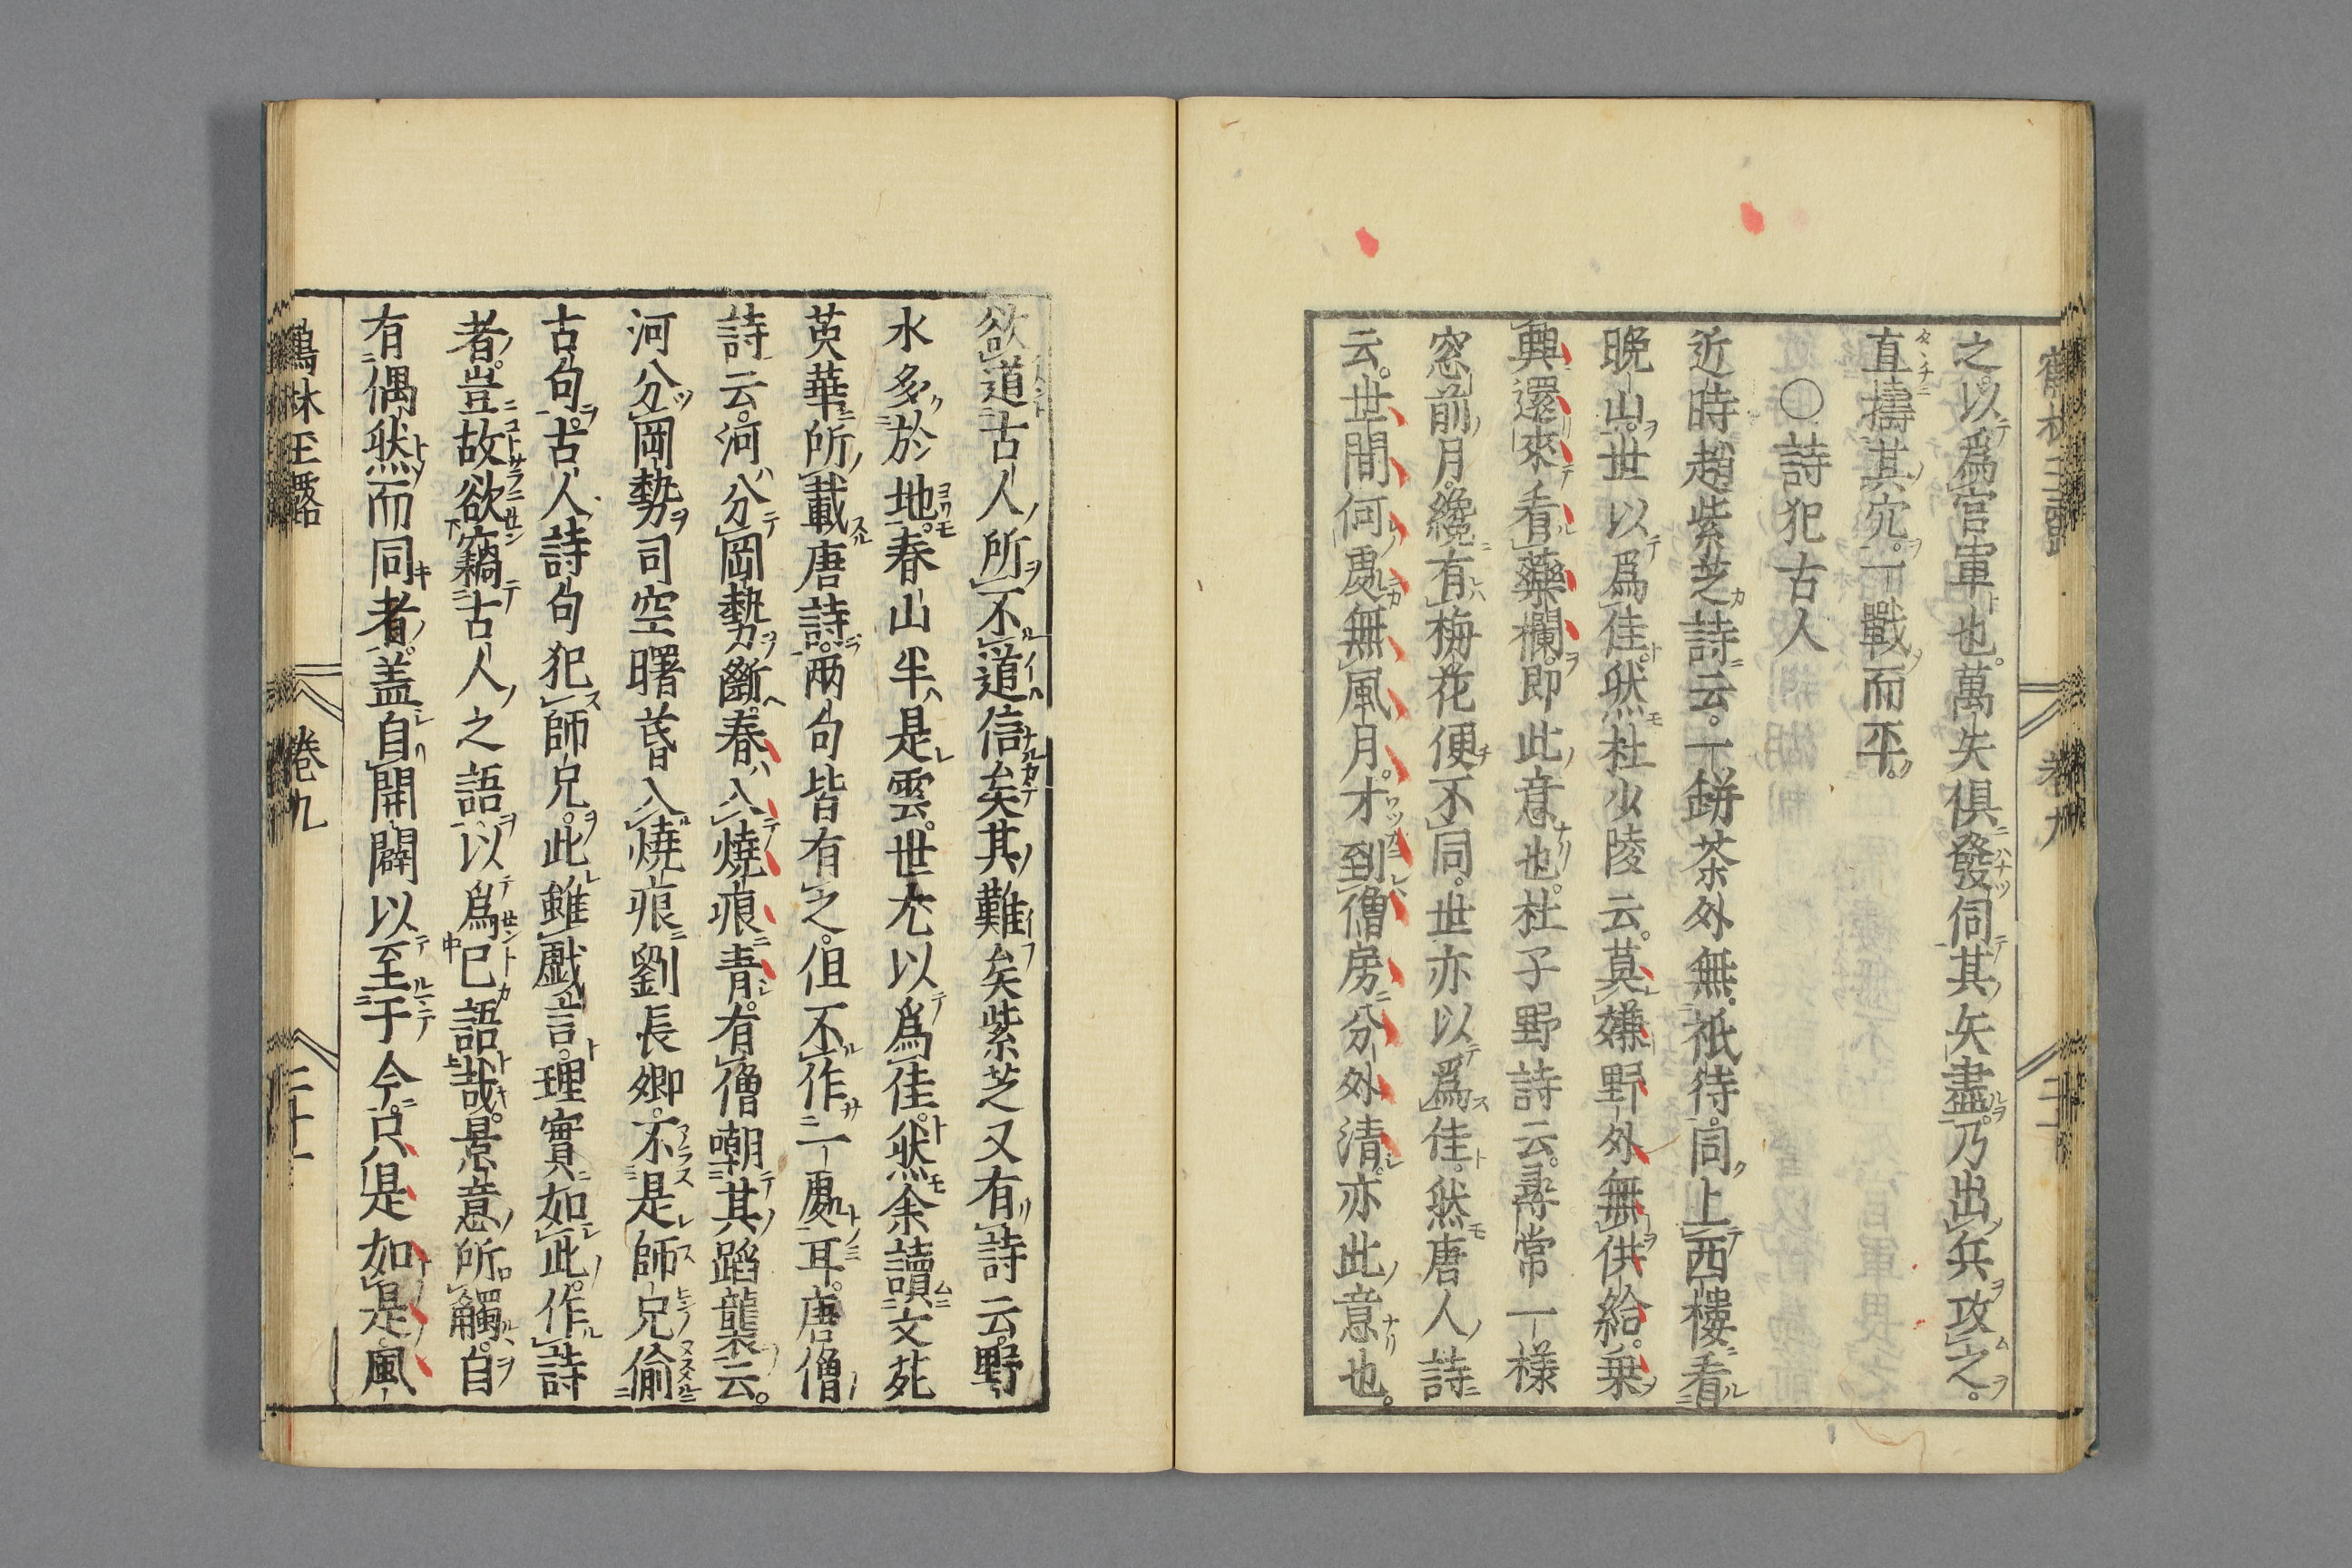 之以爲官軍也。萬矢俱發。伺其矢盡。乃出兵攻之。
直擣其穴。一戰而平。
○詩犯古人
近時趙紫芝詩云。一缾茶外無祇待。同上西樓看
晚山。世以爲佳。然杜少陵云。莫嫌野外無供給。乗
興還來看藥欄。即此意也。杜子野詩云。尋常一様
窓前月。纔有梅花便不同。世亦以爲佳。然唐人詩
云。世間何處無風月。才到僧房分外清。亦此意也。
欲道古人所不道信矣其難矣紫芝又有詩云野
水多於地。春山半是雲。世尤以爲佳。然余讀文苑
英華所載唐詩。兩句皆有之。但不作一處耳。唐僧
詩云。河分岡勢斷。春入燒痕青。有僧嘲其蹈襲云。
河分岡勢司空曙。春入燒痕劉長卿。不是師兄偷
古句。古人詩句犯師兄。此雖戲言。理實如此。作詩
者。豈故欲竊古人之語以爲己語哉。景意所觸。自
有偶然而同者。盖自開闢以至于今。只是如是風
鶴林玉露
卷九
二十一